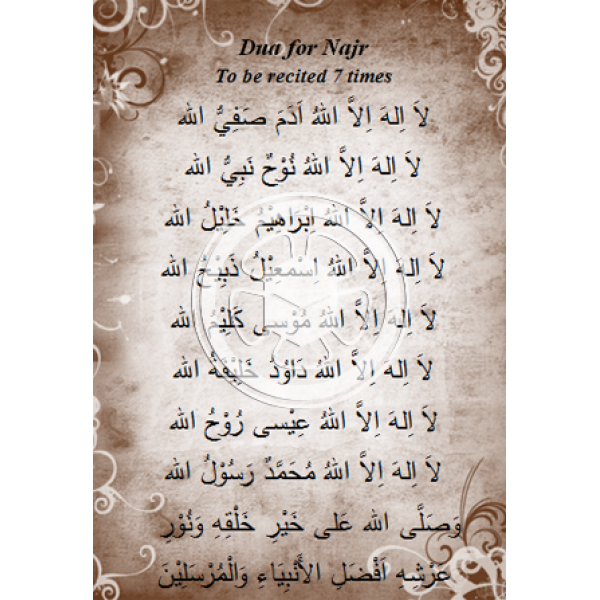 Dua for Najr
To be recited 7 times
لاَ اِلهَ اِلاَّ اللهُ اَدَمَ صَفِيُّ الله
لاَ اِلهَ اِلاَّ اللهُ نُوْحٌ نَبِيُّ الله
لاَ اِلهَ اِلاَّ اللهُ اِبْرَاهِيْمُ خَلِيْلُ الله
لاَ اِلهَ اِلاَّ اللهُ اِسْمعِيْلُ ذَبِيْحُ الله
لاَ اِلهَ اِلاَّ اللهُ مُوْسى كَلِيْمُ الله
لاَ اِلهَ اِلاَّ اللهُ دَاوُدُ خَلِيْفَةُ الله
لاَ اِلهَ اِلاَّ اللهُ عِيْسى رُوْحُ الله
لاَ اِلهَ اِلاَّ اللهُ مُحَمَّدٌ رَسُوْلُ الله
وَصَلَّى الله عَلى خَيْرِ خَلْقِهِ وَنُوْرِ
عَرْشِهِ اَفْضَلِ الأَنْبِيَاءِ وَالْمُرْسَلِيْنَ